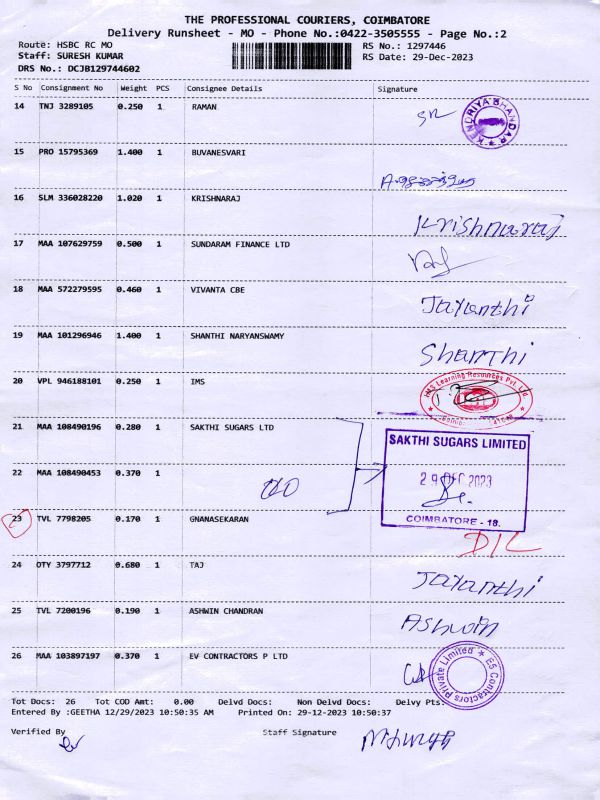 THE PROFESSIONAL COURIERS, COIMBATORE
Delivery Runsheet - MO - Phone No.:0422-3505555 - Page No.:2
Route: HSBC RC MO RS No.: 1297446
Staff: SURESH KUMAR RS Date: 29-Dec-2023
DRS No.: DCJB129744602
S No Consignment No Weight PCS Consignee Details Signature
14 TNJ 3289105 0.250 1 RAMAN
KENDRIYA BHANDAR
15 PRO 15795369 1.400 1 BUVANESVARI
16 SLM 336028220 1.020 1 KRISHNARAJ
Krishnaraj
17 MAA 107629759 0.500 1 SUNDARAM FINANCE LTD
18 MAA 572279595 0.460 1 VIVANTA CBE
Jayanthi
19 MAA 101296946 1.400 1 SHANTHI NARYANSWAMY
Shanthi
20 VPL 946188101 0.250 1 IMS
Learning Resources Pvt. Ltd
21 MAA 108490196 0.280 1 SAKTHI SUGARS LTD
SAKTHI SUGARS LIMITED
22 MAA 108490453 0.370 1
29 DEC 2023
23 TVL 7798205 0.170 1 GNANASEKARAN
COIMBATORE - 18.
D/L
24 OTY 3797712 0.680 1 TAJ
Jayanthi
25 TVL 7200196 0.190 1 ASHWIN CHANDRAN
Ashwin
26 MAA 103897197 0.370 1 EV CONTRACTORS P LTD
Contractors Private Limited
Tot Docs: 26 Tot COD Amt: 0.00 Delvd Docs: Non Delvd Docs: Delvy Pts:
Entered By :GEETHA 12/29/2023 10:50:35 AM Printed On: 29-12-2023 10:50:37
Verified By Staff Signature